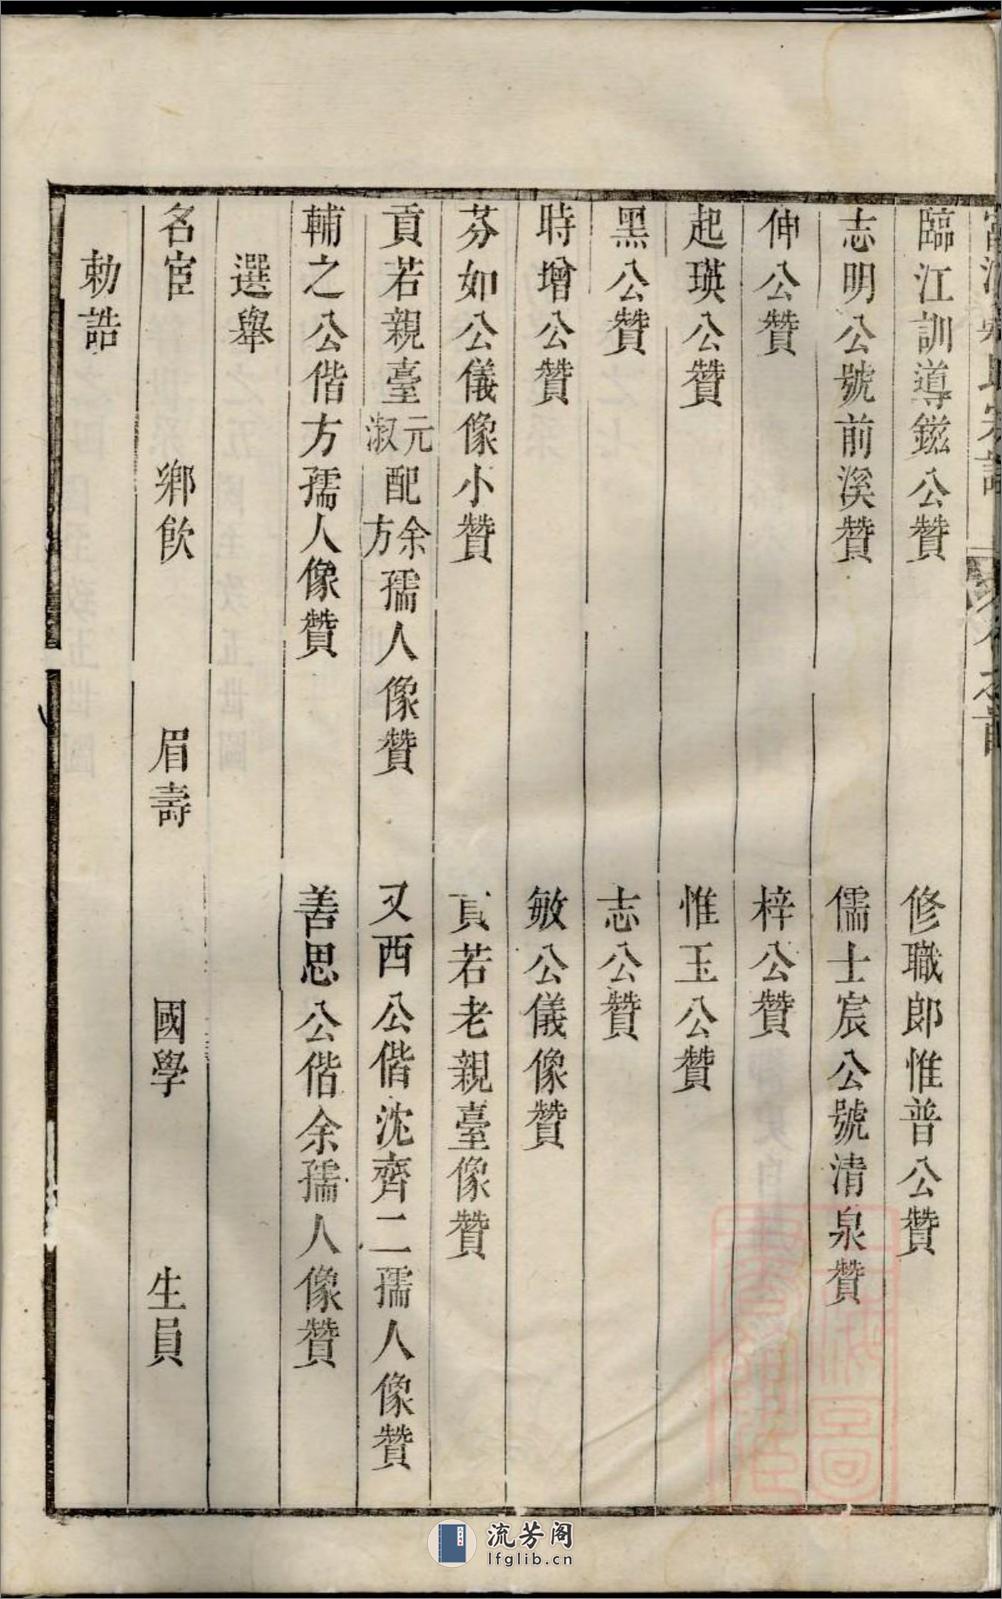 臨江訓導鎡公贊　修職郎惟普公贊
志明公號前溪贊　儒士宸公號清泉贊
伸公贊　梓公贊
起瑛公贊　惟玉公贊
黑公贊　志公贊
時增公贊　敏公儀像贊
芬如公儀像小贊　貢若老親臺像贊
貢若親臺元淑配余方孺人像贊　又西公偕沈齊二孺人像贊
輔之公偕方孺人像贊　善思公偕余孺人像贊
選舉
名宦　鄉飲　眉壽　國學　生員
勅誥
流芳阁
lfglib.cn